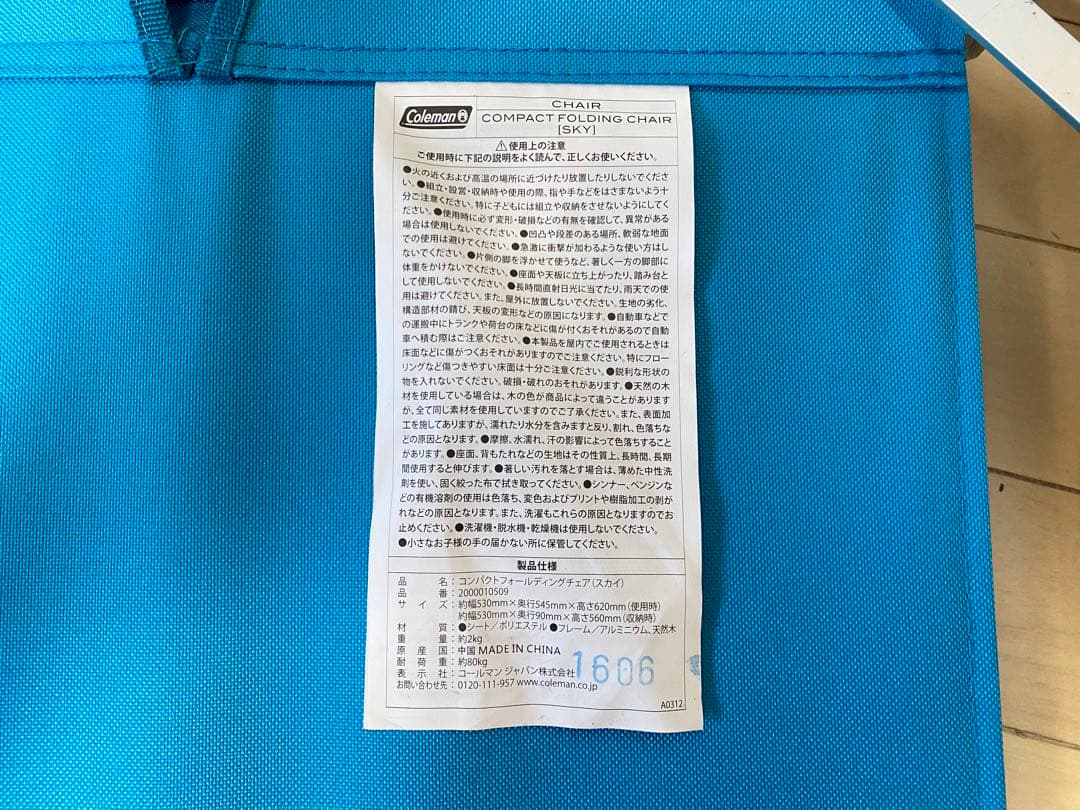 Coleman
CHAIR
COMPACT FOLDING CHAIR
[SKY]
⚠使用上の注意
ご使用時に下記の説明をよく読んで、正しくお使いください。
●火の近くおよび高温の場所に近づけたり放置したりしないでくださ
い。●組立・設営・収納時や使用の際、指や手などをはさまないよう十
分ご注意ください。特に子どもには組立や収納をさせないようにしてく
ださい。●使用時に必ず変形・破損などの有無を確認して、異常がある
場合は使用しないでください。●凹凸や段差のある場所、軟弱な地面
での使用は避けてください。●急激に衝撃が加わるような使い方はし
ないでください。●片側の脚を浮かせて使うなど、著しく一方の脚部に
体重をかけないでください。●座面や天板に立ち上がったり、踏み台と
して使用しないでください。●長時間直射日光に当てたり、雨天での使
用は避けてください。また、屋外に放置しないでください。生地の劣化、
構造部材の錆び、天板の変形などの原因になります。●自動車などで
の運搬中にトランクや荷台の床などに傷が付くおそれがあるので自動
車へ積む際はご注意ください。●本製品を屋内でご使用されるときは
床面などに傷がつくおそれがありますのでご注意ください。特にフロー
リングなど傷つきやすい床面は十分ご注意ください。●鋭利な形状の
物を入れないでください。破損・破れのおそれがあります。●天然の木
材を使用している場合は、木の色が商品によって違うことがあります
が、全て同じ素材を使用していますのでご了承ください。また、表面加
工を施してありますが、濡れたり水分を含みますと反り、割れ、色落ちな
どの原因となります。●摩擦、水濡れ、汗の影響によって色落ちすること
があります。●座面、背もたれなどの生地はその性質上、長時間、長期
間使用すると伸びます。●著しい汚れを落とす場合は、薄めた中性洗
剤を使い、固く絞った布で拭き取ってください。●シンナー、ベンジンな
どの有機溶剤の使用は色落ち、変色およびプリントや樹脂加工の剥が
れなどの原因となります。また、洗濯もこれらの原因となりますのでお
止めください。●洗濯機・脱水機・乾燥機は使用しないでください。
●小さなお子様の手の届かない所に保管してください。
製品仕様
品名:コンパクトフォールディングチェア(スカイ)
品番:2000010509
サイズ:約幅530mm×奥行545mm×高さ620mm(使用時)
約幅530mm×奥行90mm×高さ560mm(収納時)
材質:●シート/ポリエステル ●フレーム/アルミニウム、天然木
重量:約2kg
原産国:中国 MADE IN CHINA
耐荷重:約80kg
表示社:コールマン ジャパン株式会社
お問い合わせ先:0120-111-957 www.coleman.co.jp
1606
A0312